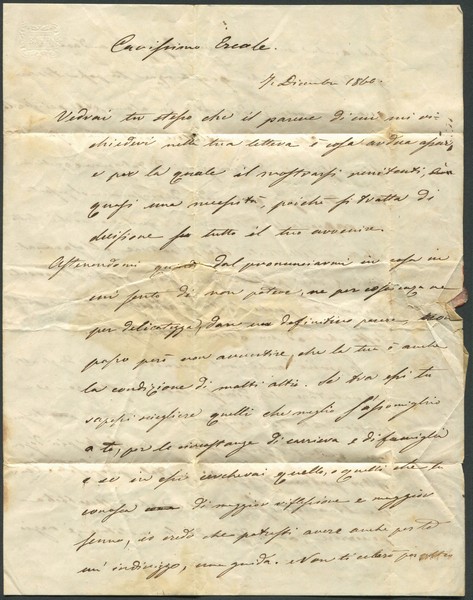 Carissimo Ercole.
7. Dicembre 1866.
Vedrai tu stesso che il parere di cui mi ri-
chiedevi nella tua lettera è cosa ardua assai,
e per la quale il mostrarsi renitenti, è
quasi una necessità, poiché si tratta di
decisione su tutto il tuo avvenire.
Astenendomi quindi dal pronunciarmi in cosa in
cui sento di non potere, ne per coscienza ne
per delicatezza, dare un definitivo parere, non
posso però non avvertire, che la tua è anche
la condizione di molti altri. Se tra essi tu
sapessi scegliere quelli che meglio s'assomigliano
a te, per le circostanze di carriera e di famiglia
e se in essi cercherai quello, o quelli che tu
conosca di maggior riflessione e maggior
senno, io credo che potresti avere anche per te
un indirizzo, una guida. Non ti celerò per altro